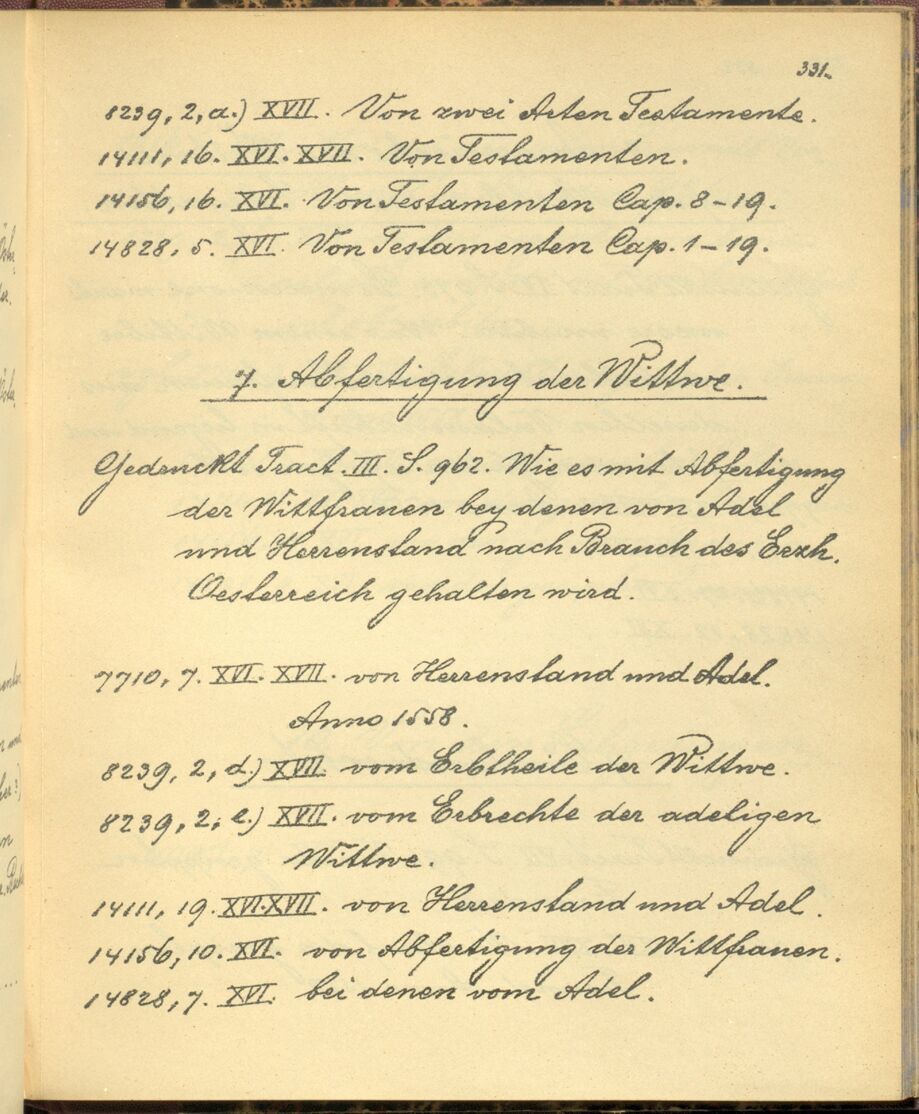 331.
8239, 2, a.) XVII. Von zwei Arten Testamente.
14111, 16. XVI. XVII. Von Testamenten.
14156, 16. XVI. Von Testamenten Cap. 8–19.
14828, 5. XVI. Von Testamenten Cap. 1–19.
7. Abfertigung der Wittwe.
Gedruckt Tract. III. S. 962. Wie es mit Abfertigung
der Wittfrauen bey denen von Adel
und Herrenstand nach Brauch des Erzh.
Oesterreich gehalten wird.
7710, 7. XVI. XVII. von Herrenstand und Adel.
Anno 1558.
8239, 2, d.) XVII. vom Erbtheile der Wittwe.
8239, 2, e.) XVII. vom Erbrechte der adeligen
Wittwe.
14111, 19. XVI. XVII. von Herrenstand und Adel.
14156, 10. XVI. von Abfertigung der Wittfrauen.
14828, 7. XVI. bei denen vom Adel.